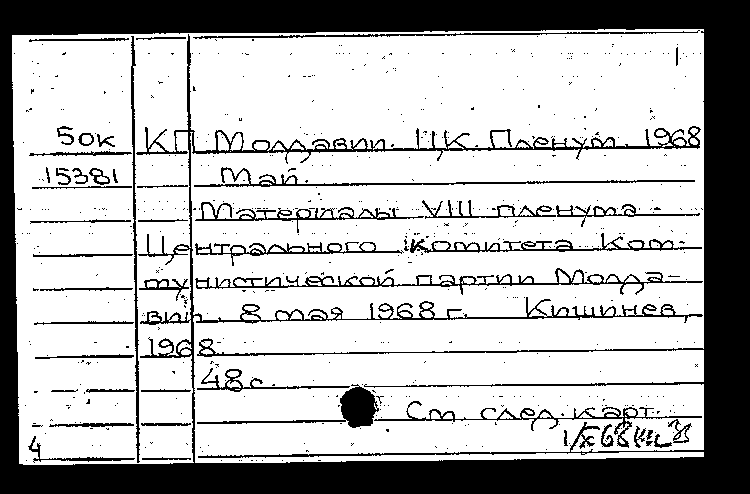 50к КП Молдавии. ЦК. Пленум. 1968
15381 Май.
Материалы VIII пленума
Центрального Комитета Ком-
мунистической партии Молда-
вии. 8 мая 1968 г. Кишинев,
1968.
48 с.
См. след. карт.
4